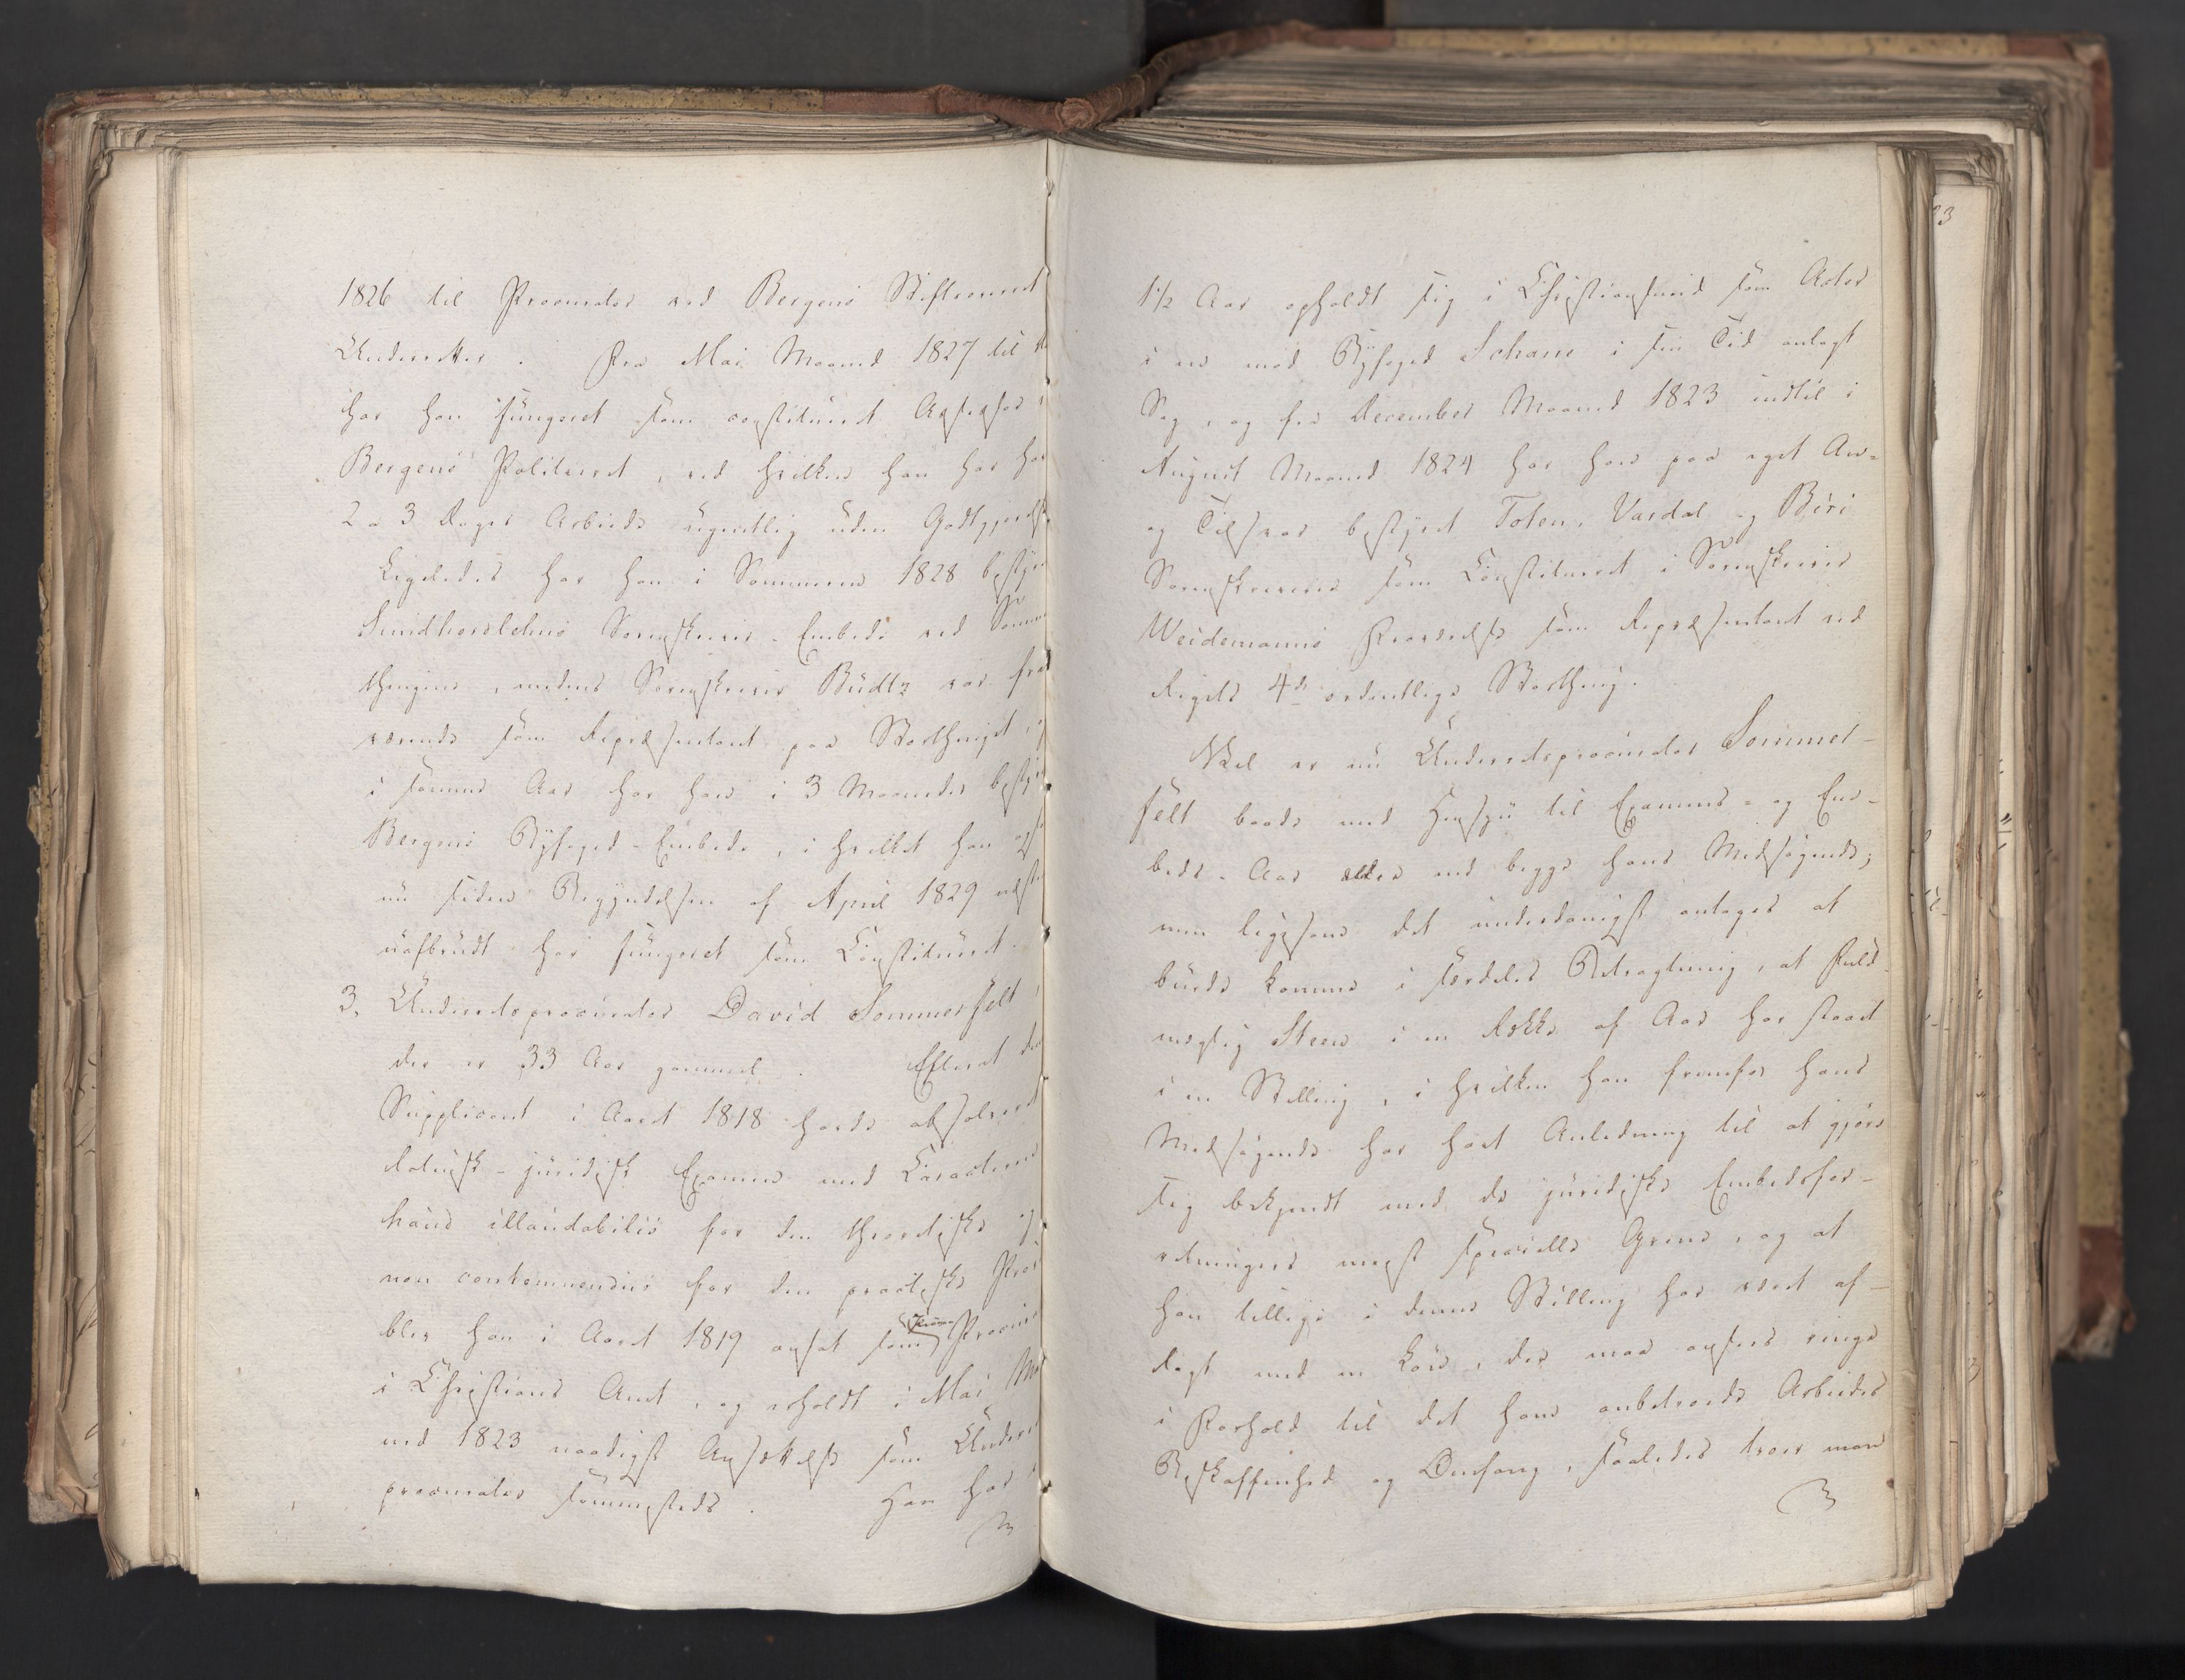 1826 til Procurator ved Bergens Stiftsoveret
Underretter. Fra Mai Maaned 1827 til
har han fungeret som constitueret Assessor i
Bergens Politieret, ved hvilken han har hav
2 a 3 Dages Arbeide ugentlig uden Godtgjørelse,
Ligeledes har han i Sommeren 1828 bestyr
Sundhordlehns Sorenskriver-Embede ved Somm
thingene, medens Sorenskriver Büdtz var fra
værende som Repræsentant paa Storthinget, og
i samme Aar har han i 3 Maaneder bestyr
Bergens Byfoged-Embede, i hvilket han ogsaa
nu siden Begyndelsen af April 1829 næsten
uafbrudt har fungeret som Constitueret.
3. Underretsprocurator David Sommerfelt,
der er 33 Aar gammel. Efterat den
Supplicant i Aaret 1818 havde absolveret
latinsk-juridisk Examen med Caracteren
haud illaudabilis for den theoretiske og
non contemnendus for den practiske Prøv
blev han i Aaret 1819 ansat som Procur
i Christians Amt, og erholdt i Mai Maa
ned 1823 naadigst Ansættelse som Underre
procurator sammesteds. Han har i
1½ Aar opholdt sig i Christianssund som Actor
i en mod Byfoged Schane i sin Tid anlagt
Sag, og fra December Maaned 1823 indtil i
August Maaned 1824 har han paa eget An-
og Tilsvar bestyret Toten, Vardal og Biri
Sorenskriverie som Constitueret i Sorenskriver
Weidemanns Fraværelse som Repræsentant ved
Rigets 4de ordentlige Storthing.
Vel er nu Underretsprocurator Sommer-
felt baade med Hensyn til Examens- og Em-
beds-Aar ældre end begge hans Medsøgende;
men ligesom det underdanigst antages at
burde komme i særdeles Betragtning, at Fuld-
mægtig Steen i en Række af Aar har staaet
i en Stilling, i hvilken han fremfor hans
Medsøgende har havt Anledning til at gjøre
sig bekjendt med de juridiske Embedsfor-
retningers meest specielle Grene, og at
han tillige i denne Stilling har været af-
lagt med en Løn, der maa ansees ringe
i Forhold til det ham anbetroede Arbeides
Beskaffenhed og Omfang, saaledes troer man